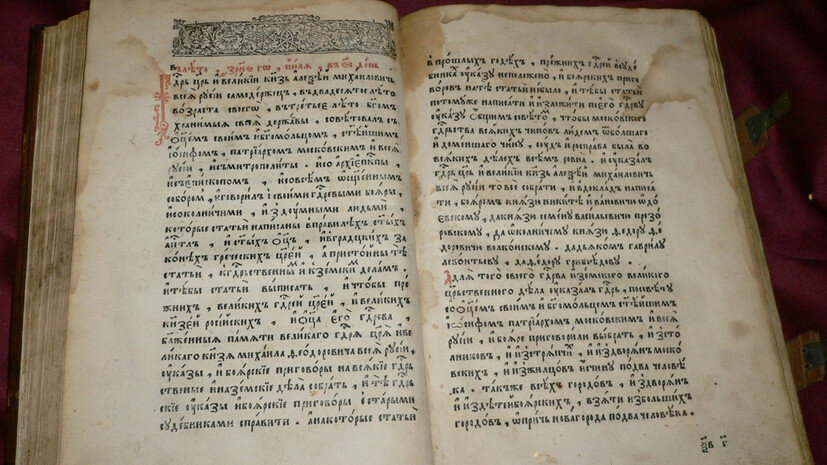 въ лѣто ҂зрнѕ гѡ , июлѧ , въ ѕі день
гдрь црь и великіи кнѧзь алеѯѣи михаиловичь
всеѧ русіи самодержецъ , въдвадесѧтое лѣто
возраста своегѡ , вътретьее лѣто бгомъ
хранимыѧ своеѧ державы , совѣтовалъ съ
ѻцемъ своимъ ибгомольцемъ , стѣишимъ
іѡсифомъ , патріархомъ московскимъ ивсеѧ
русіи , исъмитрополиты . исо архіепкпы ,
исъепископомъ , исовсѣмъ ѡсщеннымъ
соборомъ , иговорилъ съсвоими гдревыми боѧры ,
исоколничими , издꙋмными людьми ,
которые статьи написаны вправилѣхъ стыхъ
апслъ , и стыхъ ѻцъ , ивградцкихъ за
конѣхъ греческихъ црей , апристойны тѣ
статьи , кгдрственнымъ икземскимъ дѣламъ ,
итѣбы статьи выписать , ичтобы пре
жнихъ , великихъ гдрей црей , ивеликихъ
кнѧзей російскихъ , иѻца его гдрева ,
блаженныѧ памѧти великагѡ гдрѧ црѧ иве
ликагѡ кнѧзѧ михаила ѳеодоровича всеѧ русіи ,
ꙋказы , ибоѧрскіе приговоры навсѧкіе гдр
ственные иназемскіе дѣла собрать , итѣ гдр
скіе ꙋказы ибоѧрскіе приговоры состарыми
сꙋдебниками справити . анакоторые статьи
впрошлыхъ годѣхъ , прежнихъ гдрей всꙋде
бникахъ ꙋказꙋ неположено , ибоѧрскихъ приго
воровъ натѣ статьи небыло , итѣбы статьи
потомꙋже написати иизложити поего гдревꙋ
ꙋказꙋ ѻбщимъ совѣтомъ , чтобы московскаго
гдрьства всѧкихъ чиновъ людемъ ѿболшаго
идоменшаго чинꙋ , сꙋдъ ирасправа была во
всѧкихъ дѣлехъ всѣмъ ровна . иꙋказалъ
гдрь црь и великіи кнѧзь алеѯѣи михаиловичь
всеѧ русіи то все собрати , ивдокладъ написа
ти , боѧромъ кнѧзю никитѣ ивановичю ѻдо
евскомꙋ , дакнѧзю семенꙋ васильевичю прозо
ровскомꙋ , даѻколничемꙋ кнѧзю ѳедорꙋ ѳе
доровичю волконскомꙋ . дадьѧкомъ гаврилꙋ
леонтьевꙋ , даѳедорꙋ грибоедовꙋ .
адлѧ того своего гдрева иземскаго великаго
црьственнаго дѣла ꙋказалъ гдрь , посовѣтꙋ
соѻцемъ своимъ ибгомольцемъ стѣйшимъ
іѡсифомъ патріархомъ московскимъ ивсеѧ
русіи , ибоѧре приговорили выбрать , изсто
лниковъ , иизстрѧпчихъ , ииздворѧнъ моско
вскихъ , иизжилцовъ , ичинꙋ подва человѣ
ка . такъже всѣхъ городовъ , издворѧнъ
и издѣтейбоѧрскихъ , взѧти избольшихъ
городовъ , ѡпричь новагорода подвачеловѣка .